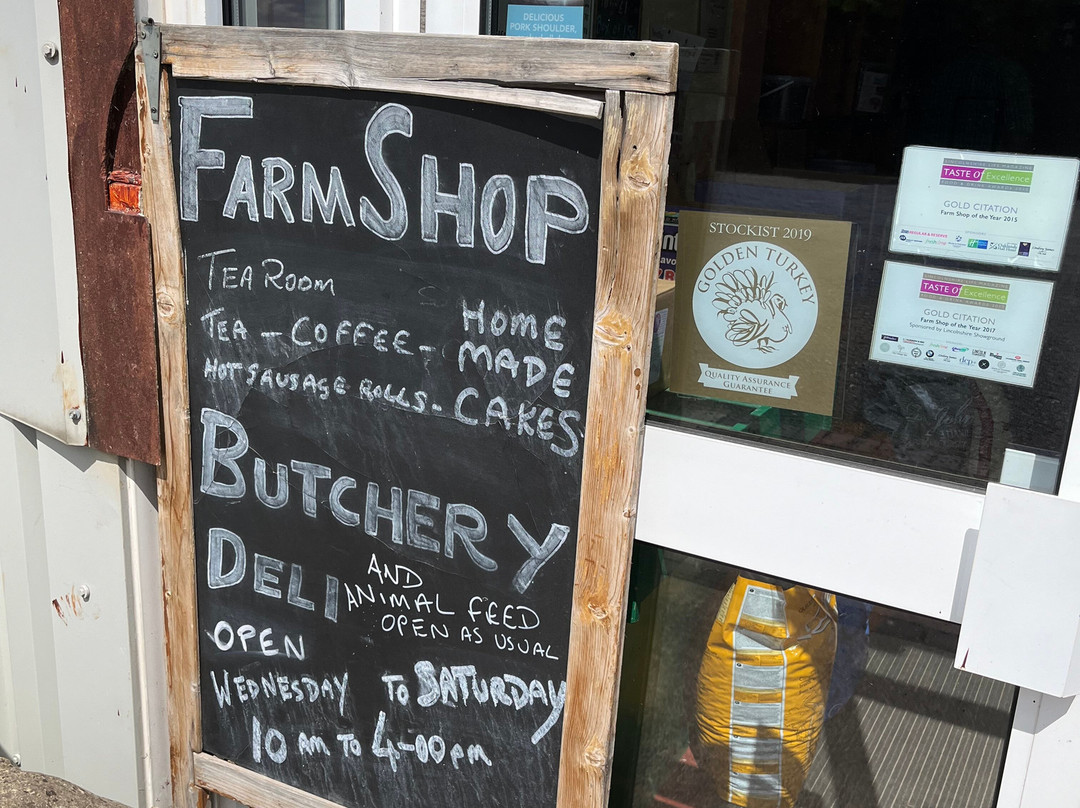 DELICIOUS
PORK SHOULDER,
FARM SHOP
TEA ROOM
TEA - COFFEE -
HOT SAUSAGE ROLLS -
HOME
MADE
CAKES
BUTCHERY
DELI
AND
ANIMAL FEED
OPEN AS USUAL
OPEN
WEDNESDAY TO SATURDAY
10 AM TO 4-00 PM
STOCKIST 2019
GOLDEN TURKEY
QUALITY ASSURANCE
GUARANTEE
TASTE Of Excellence
GOLD CITATION
Farm Shop of the Year 2015
TASTE Of Excellence
GOLD CITATION
Farm Shop of the Year 2017
Sponsored by Lincolnshire Showground